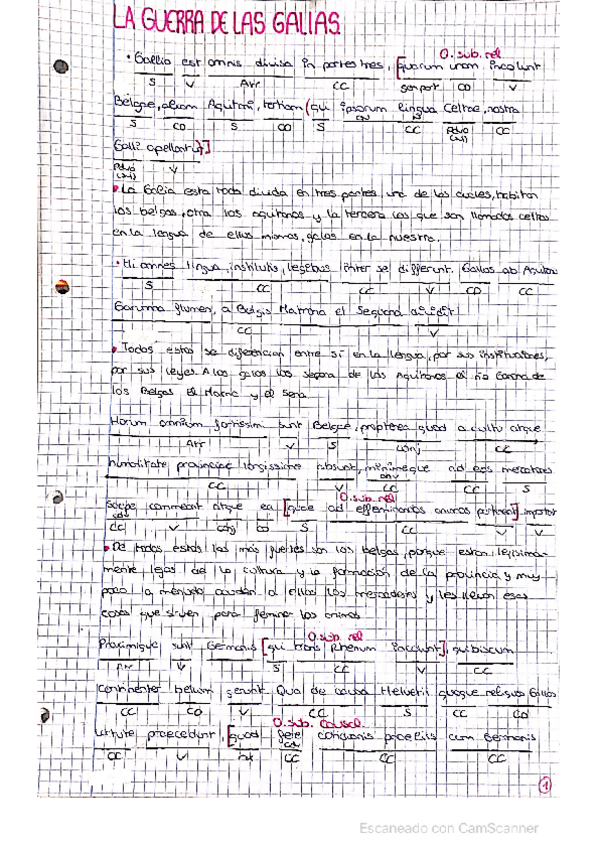 LA GUERRA DE LAS GALIAS
O. sub. rel
• Gallia est omnis divisa in partes tres, [quarum unam incolunt
S V Atr CC CD V
Belgae, aliam Aquitani, tertiam (qui ipsorum lingua Celtae, nostra
S CO S CO S CC CC
Galli apellantur)]
V
• La Galia esta toda divida en tres partes, una de las cuales, habitan
los belgas, otra los aquitanos y la tercera los que son llamados celtas
en la lengua de ellos mismos, galos en la nuestra.
• Hi omnes lingua, institutis, legibus inter se differunt. Gallos ab Aquitanis
S CC CC V CD CC
Garumna flumen, a Belgis Matrona et Sequana dividit
CC V
• Todos estos se diferencian entre sí en la lengua, por sus instituciones,
por sus leyes. A los galos los separa de los Aquitanos el río Garona de
los Belgas el Marne y el Sena.
Horum omnium fortissimi sunt Belgae, propterea quod a cultu atque
Atr V S conj CC
humanitate provinciae longissime absunt, minimeque ad eos mercatores
CC CC V CC CC S
O. sub. rel
saepe commeant atque ea [quae ad effeminandos animos pertinent] important
CC V conj CD S CC V V
• De todos estos los más fuertes son los belgas, porque estan
lejos de la cultura y la formación de la provincia y muy
poco a menudo acuden a ellos los mercaderes y les llevan esas
cosas que sirven para los animos
O. sub. rel
Proximique sunt Germanis [qui trans Rhenum incolunt], quibuscum
Atr V S CC V CC
continenter bellum gerunt. Qua de causa Helvetii quoque reliquos Gallos
CC CD V CC S CC CD
O. sub. causal
virtute praecedunt, [quod fere cotidianis proeliis cum Germanis
CC V CC CC CC
1
Escaneado con CamScanner